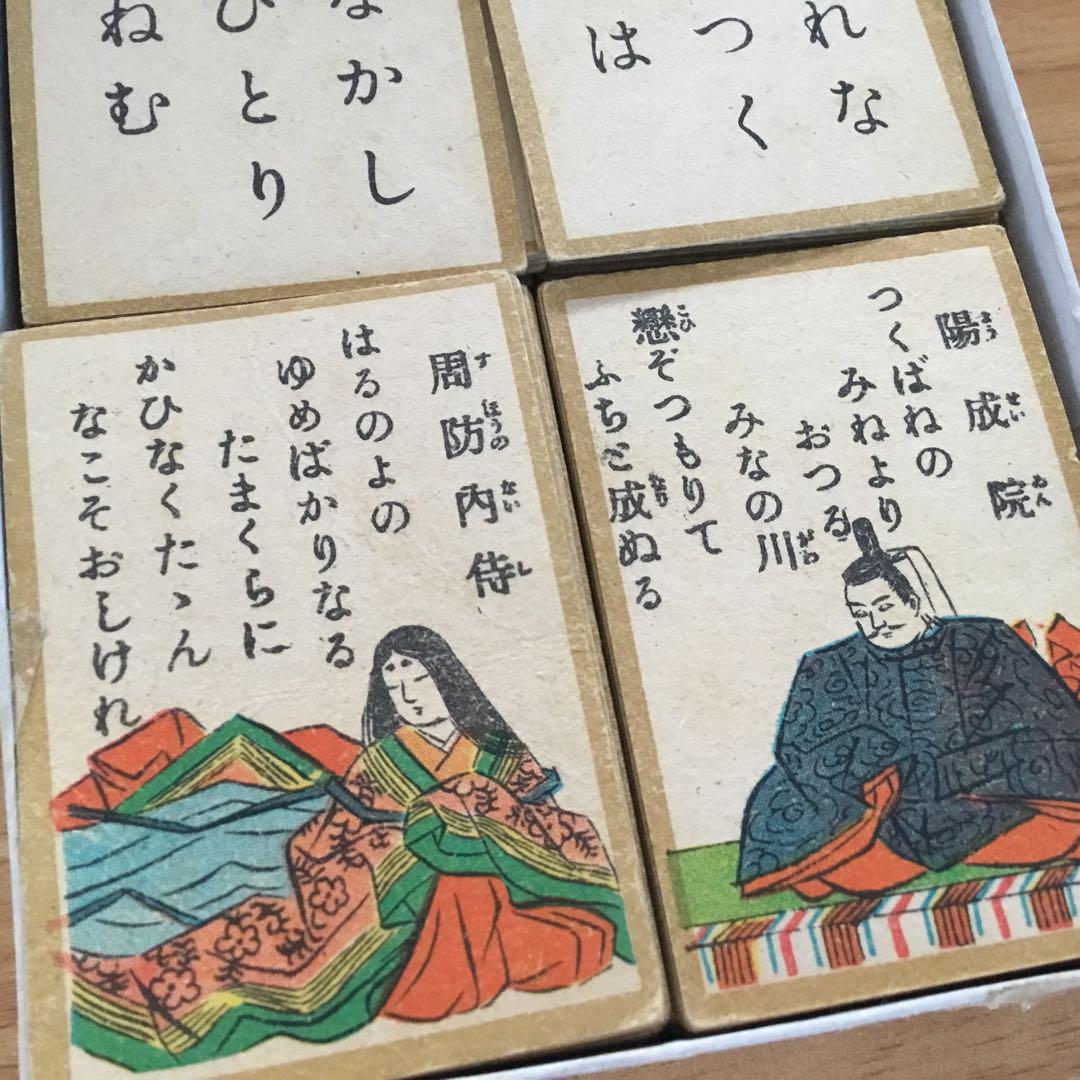 れな
つく
は
なかし
ひとり
ねむ
陽成院
つくばねの
みねより
おつる
みなの川
戀ぞつもりて
ふちと成ぬる
周防内侍
はるのよの
ゆめばかりなる
たまくらに
かひなくたゝん
なこそおしけれ